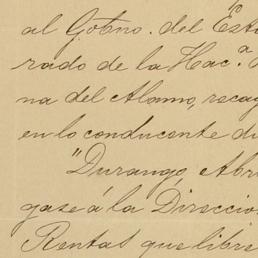 al Gobno. del Est
rado de la Hac.ª
na del Alamo, recay
en lo conducente di
"Durango, Abri
gase á la Direccio
Rentas que libre